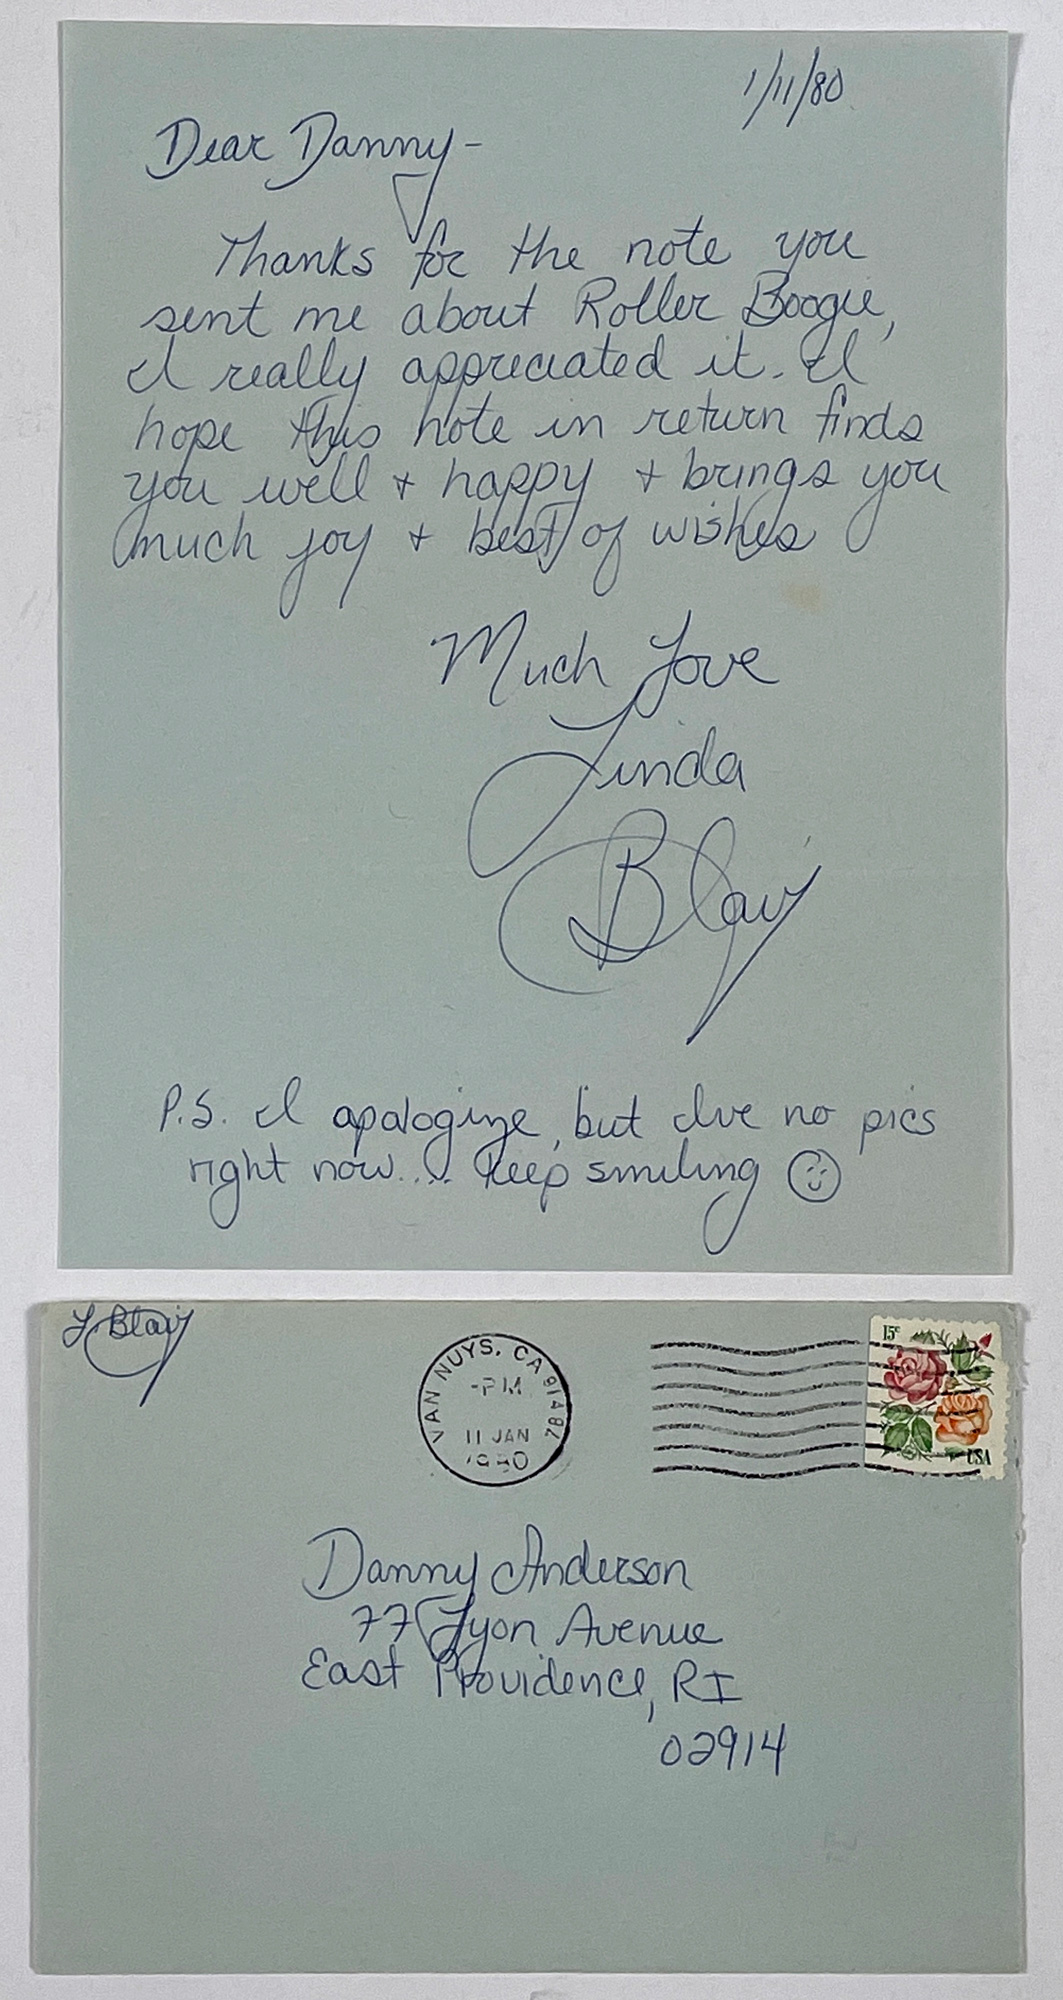 1/11/80
Dear Danny -
Thanks for the note you
sent me about Roller Boogie,
I really appreciated it. I
hope this note in return finds
you well + happy + brings you
much joy + best of wishes
Much Love
Linda
Blair
P.S. I apologize, but I've no pics
right now.... keep smiling
L Blair
VAN NUYS, CA
PM
11 JAN
1980
15c
USA
Danny Anderson
77 Lyon Avenue
East Providence, RI
02914